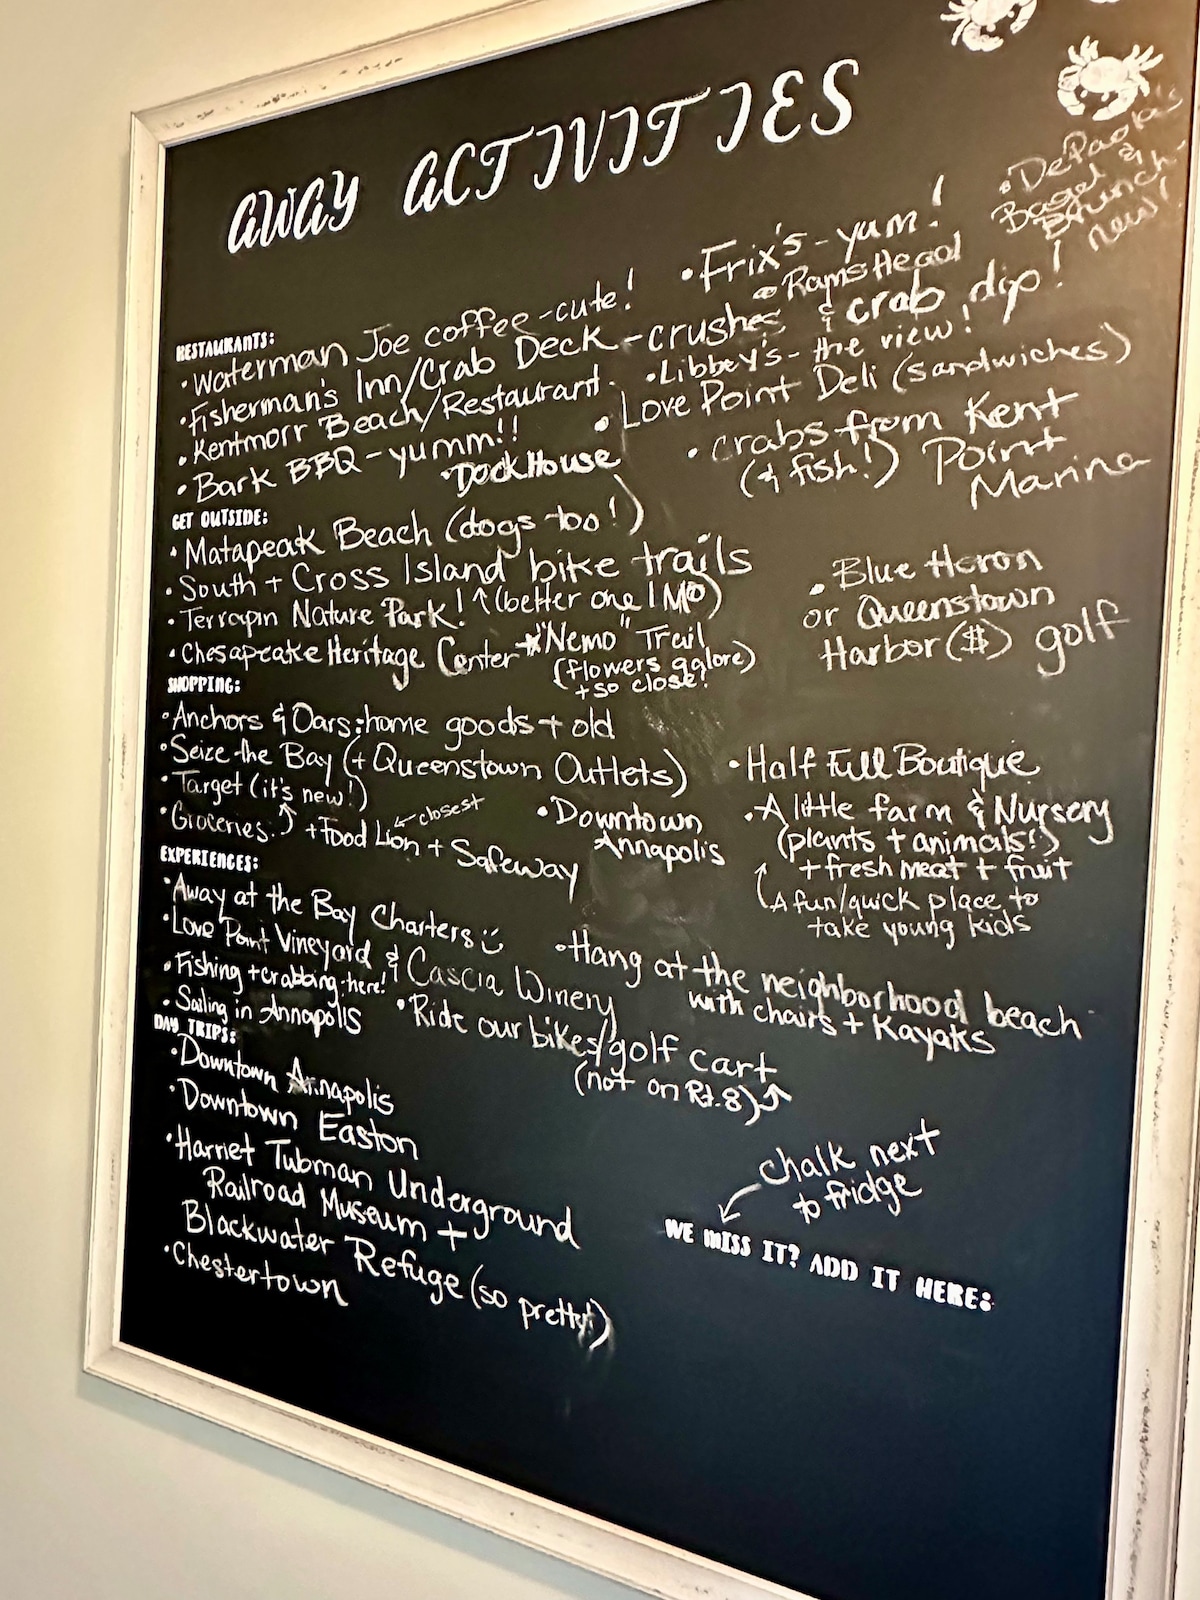 AWAY ACTIVITIES
• DePaola's
Bagel &
Brunch-
new!
RESTAURANTS:
• Waterman Joe coffee-cute!
• Frix's - yum!
• Fisherman's Inn/Crab Deck - crushes & crab dip!
• Rams Head
• Kentmorr Beach/Restaurant
• Libbey's - the view!
• Bark BBQ - yumm!!
• Love Point Deli (sandwiches)
• DockHouse
• crabs from Kent
(& fish!) Point
Marina
GET OUTSIDE:
• Matapeak Beach (dogs too!)
• South + Cross Island bike trails
• Terrapin Nature Park! ↑ (better one IMO)
• Chesapeake Heritage Center * "Nemo" Trail
(flowers galore)
+ so close!
• Blue Heron
or Queenstown
Harbor ($) golf
SHOPPING:
• Anchors & Oars: home goods + old
• Seize the Bay (+ Queenstown Outlets)
• Target (it's new!)
• Groceries: + Food Lion + Safeway
← closest
• Downtown
Annapolis
• Half Full Boutique
• A little farm & Nursery
(plants + animals!)
+ fresh meat + fruit
A fun/quick place to
take young kids
EXPERIENCES:
• Away at the Bay Charters
• Love Point Vineyard & Cascia Winery
• Fishing + crabbing-here!
• Sailing in Annapolis
• Hang at the neighborhood beach
with chairs + Kayaks
• Ride our bikes/golf cart
(not on Rt.8)
DAY TRIPS:
• Downtown Annapolis
• Downtown Easton
• Harriet Tubman Underground
Railroad Museum +
Blackwater Refuge (so pretty!)
• Chestertown
chalk next
to fridge
WE MISS IT? ADD IT HERE: